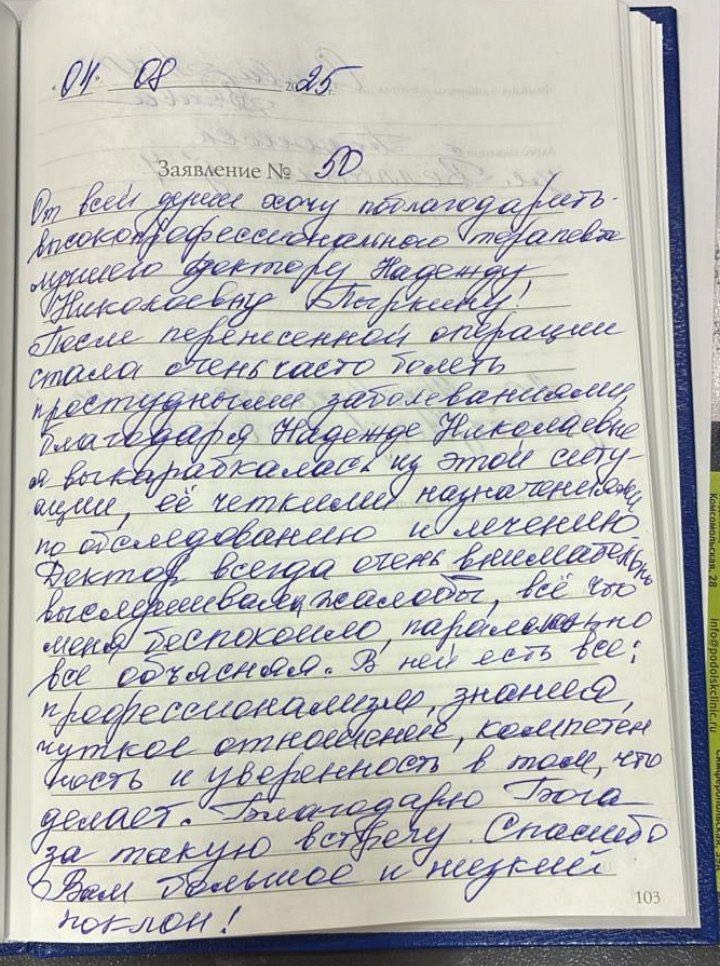 "04" 08 2025г.
Заявление № 50
От всей души хочу поблагодарить
высокопрофессионального терапевта
лучшего доктору Надежду
Николаевну Пыркину!
После перенесенной операции
стала очень часто болеть
простудными заболеваниями,
благодаря Надежде Николаевне
я выкарабкалась из этой ситу-
ации, её четкими назначениями
по обследованию и лечению.
Доктор всегда очень внимательно
выслушивала жалобы, всё что
меня беспокоило, паралельно
всё объясняя. В ней есть все:
профессионализм, знания,
чуткое отношение, компетен
ность и уверенность в том, что
делает. Благодарю Бога
за такую встречу. Спасибо
Вам большое и низкий
поклон!
103
Комсомольская, 28
info@podolskclinic.ru